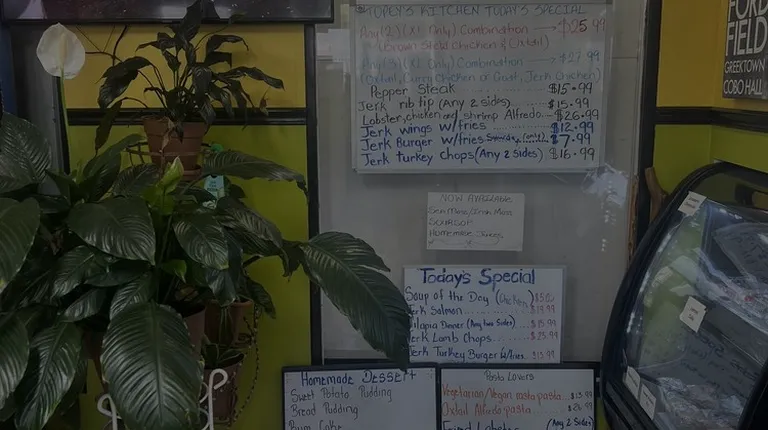 KITCHEN TODAY'S SPECIAL
Any (2) (XL Only) Combination $25.99
(Brown Stew Chicken & Oxtail)
Any (3) (XL Only) Combination $27.99
(Oxtail, Curry Chicken or Goat, Jerk Chicken)
Pepper Steak $15.99
Jerk rib tip (Any 2 sides) $15.99
Lobster, chicken and shrimp Alfredo $26.99
Jerk wings w/fries $12.99
Jerk Burger w/fries (only) $7.99
Jerk turkey chops (Any 2 Sides) $16.99
NOW AVAILABLE
Sea Moss/Irish Moss
Soursop
Homemade Juices
Today's Special
Soup of the Day (Chicken)
Jerk Salmon $19.99
Tilapia Dinner (Any two Sides) $15.99
Jerk Lamb Chops $25.99
Jerk Turkey Burger w/fries $13.99
Homemade Dessert
Sweet Potato Pudding
Bread Pudding
Rum Cake
Pasta Lovers
Vegetarian/Vegan rasta pasta $13.99
Oxtail Alfredo pasta
Fried Lobster (Any 2
FORD
FIELD
GREEKTOWN
COBO HALL